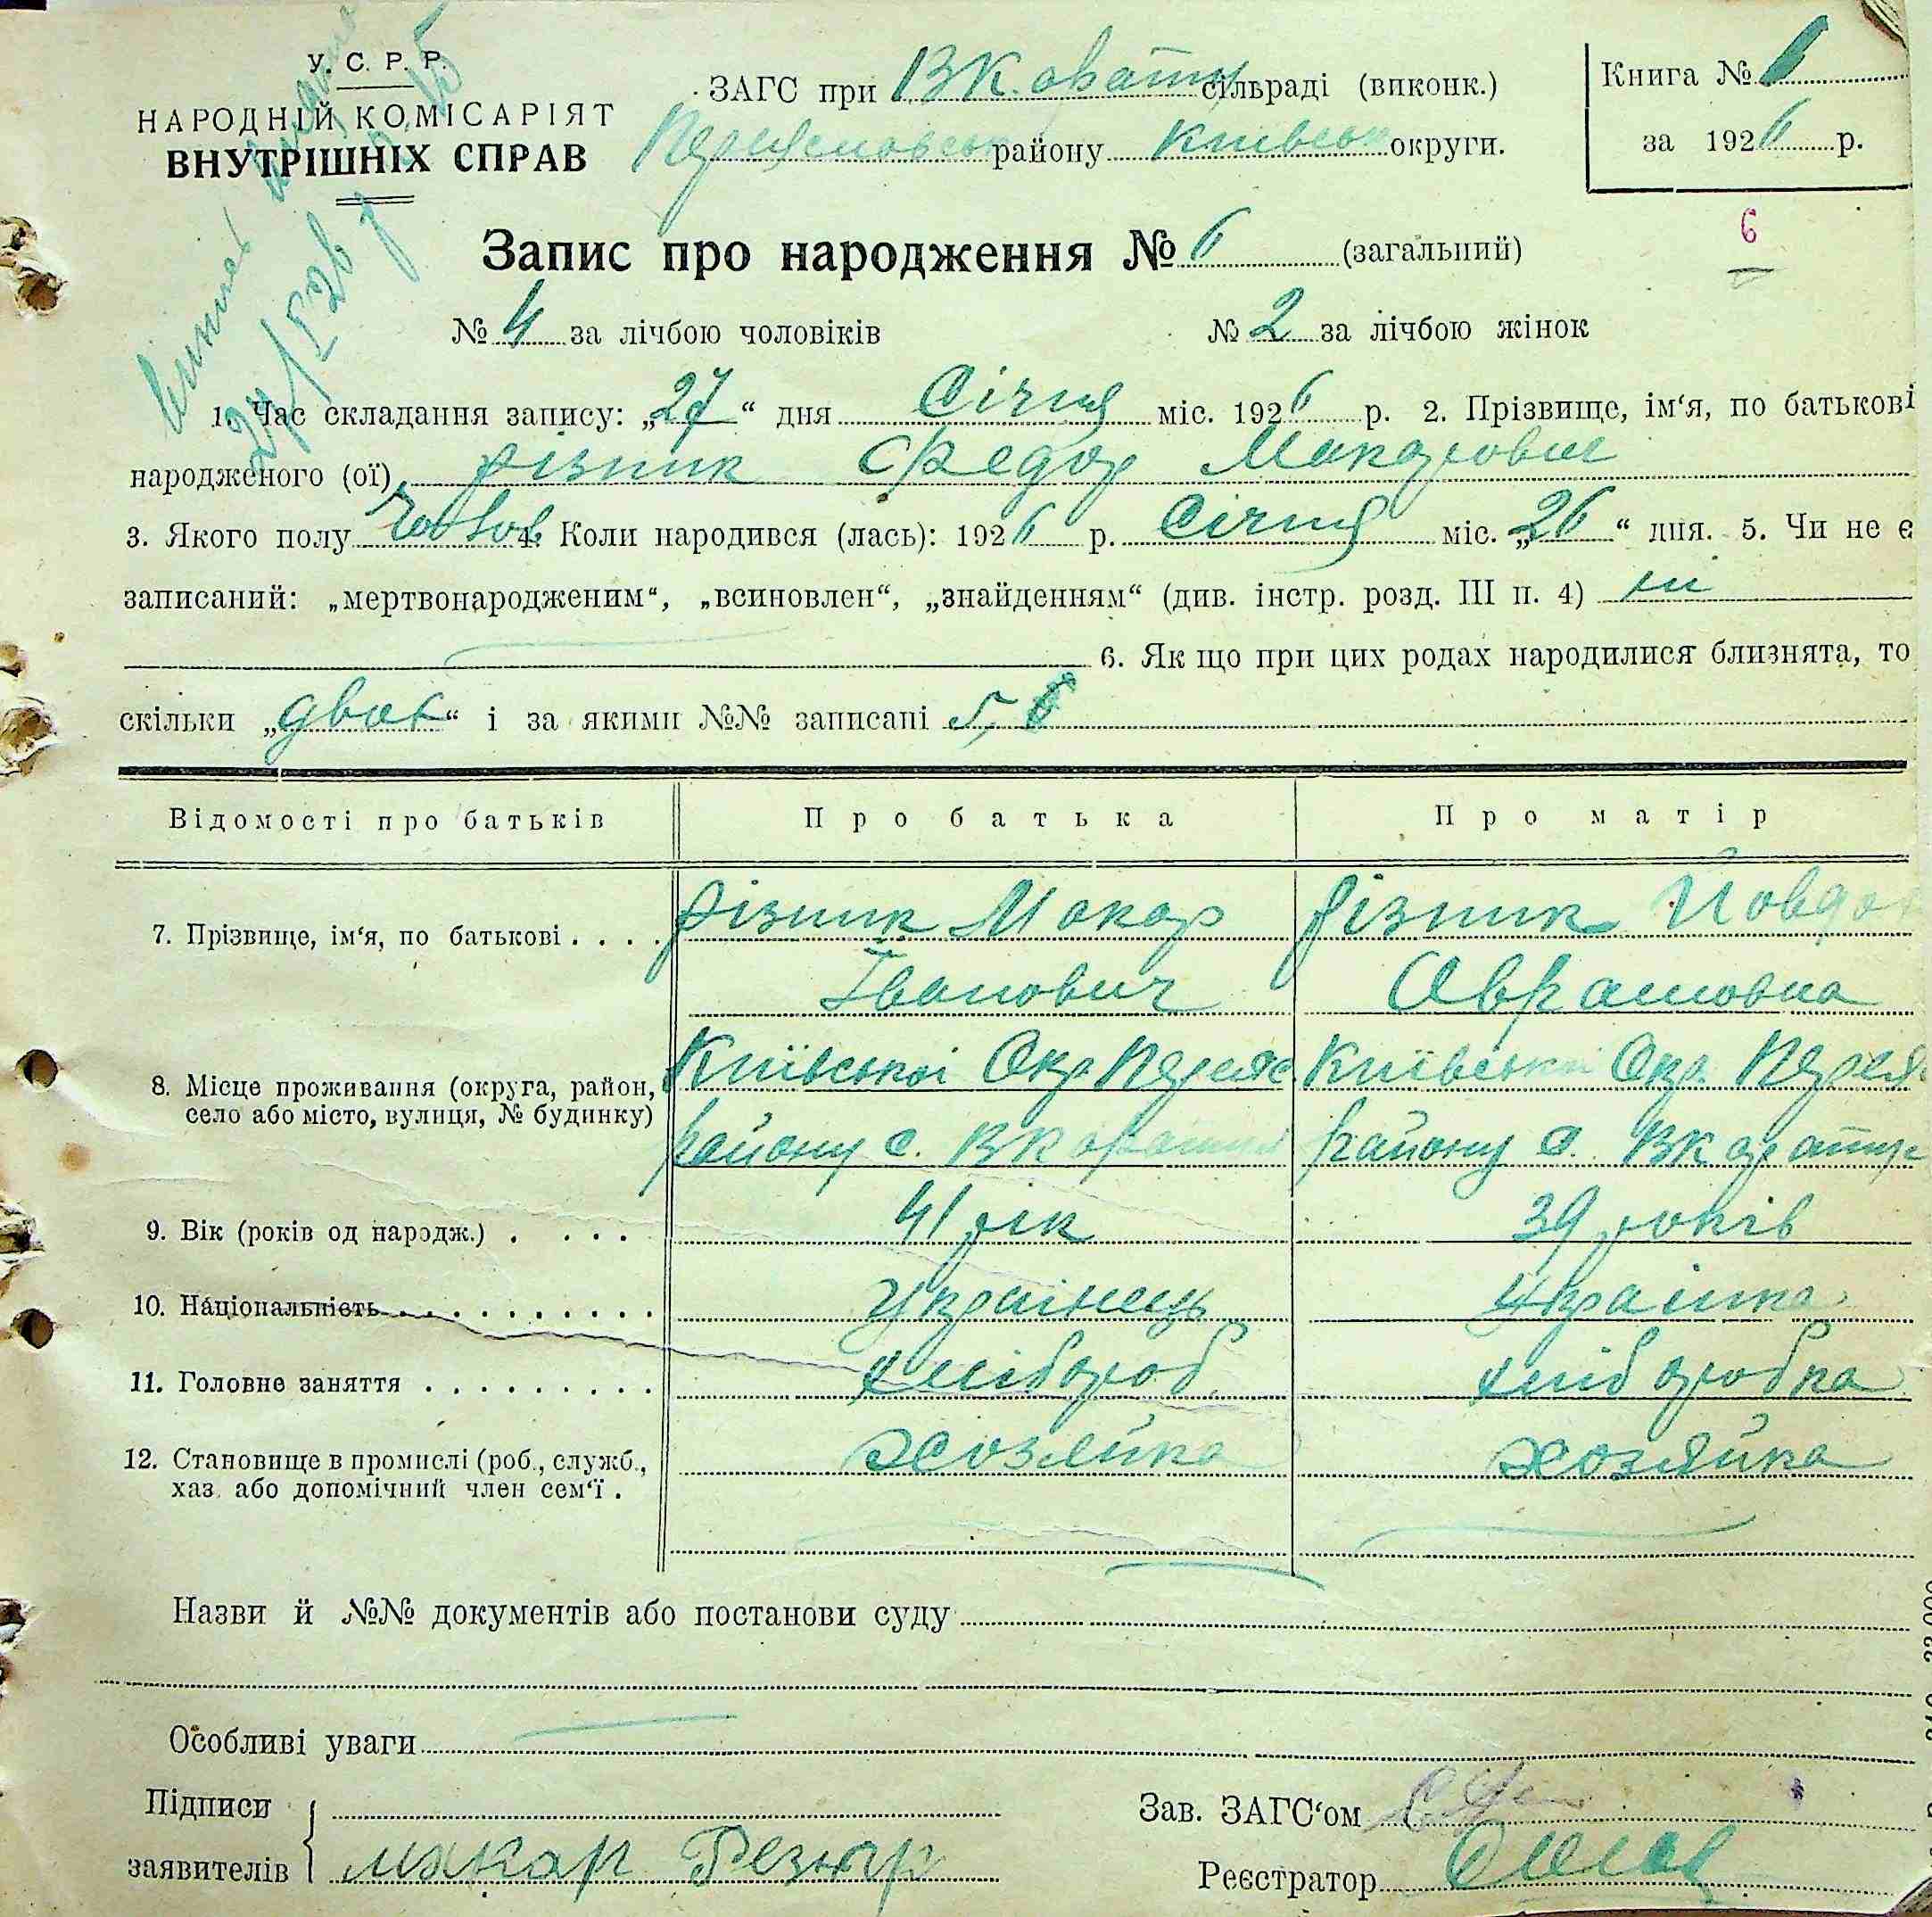 У. С. Р. Р.
НАРОДНІЙ КОМІСАРІЯТ
ВНУТРІШНІХ СПРАВ
ЗАГС при В К. сільраді (виконк.)
району Київськ округи.
Книга № 1
за 1926 р.
6
Запис про народження № 6 (загальний)
№ 4 за лічбою чоловіків № 2 за лічбою жінок
1. Час складання запису: „27“ дня Січня міс. 1926 р. 2. Прізвище, ім‘я, по батькові
народженого (ої) Різник Федор Макарович
3. Якого полу Чолов 4. Коли народився (лась): 1926 р. Січня міс. „26“ дня. 5. Чи не є
записаний: „мертвонародженим“, „всиновлен“, „знайденням“ (див. інстр. розд. III п. 4) ні
6. Як що при цих родах народилися близнята, то
скільки „двоє“ і за якими №№ записані 5, 6
Відомості про батьків Про батька Про матір
7. Прізвище, ім‘я, по батькові . . . . Різник Макар Різник Йовдо
Іванович Аврамовна
8. Місце проживання (округа, район, Київської Окр Переяс Київської Окр. Переяс
село або місто, вулиця, № будинку) району с. В К району с. В К
9. Вік (років од народж.) . . . . 41 рік 39 років
10. Національність . . . . . . . . . . Українець Українка
11. Головне заняття . . . . . . . . . . хлібороб. хліборобка
12. Становище в промислі (роб., служб., хозяйка хозяйка
хаз. або допомічний член сем‘ї .
Назви й №№ документів або постанови суду
Особливі уваги
Підписи
заявителів макар
Зав. ЗАГС‘ом
Реєстратор